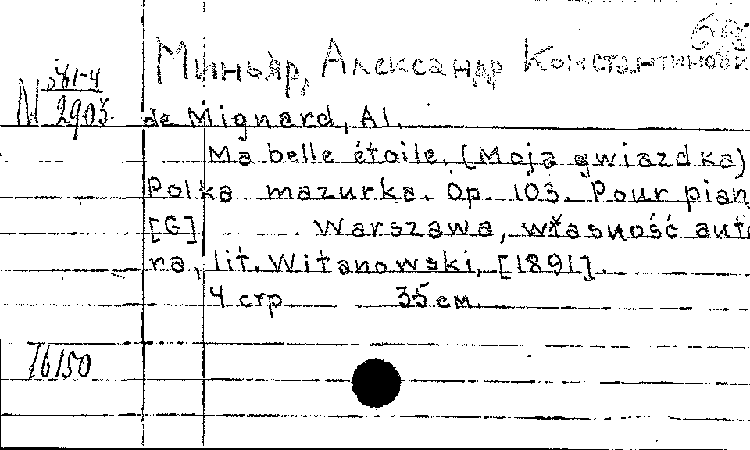 Миньяр, Александр Константинови
М 581-4
2903
de Mignard, Al.
Ma belle étoile. (Moja gwiazdka)
Polka mazurka. Op. 103. Pour pian
[G] Warszawa, własność auto
ra, lit. Witanowski, [1891].
4 стр 35 см.
16150